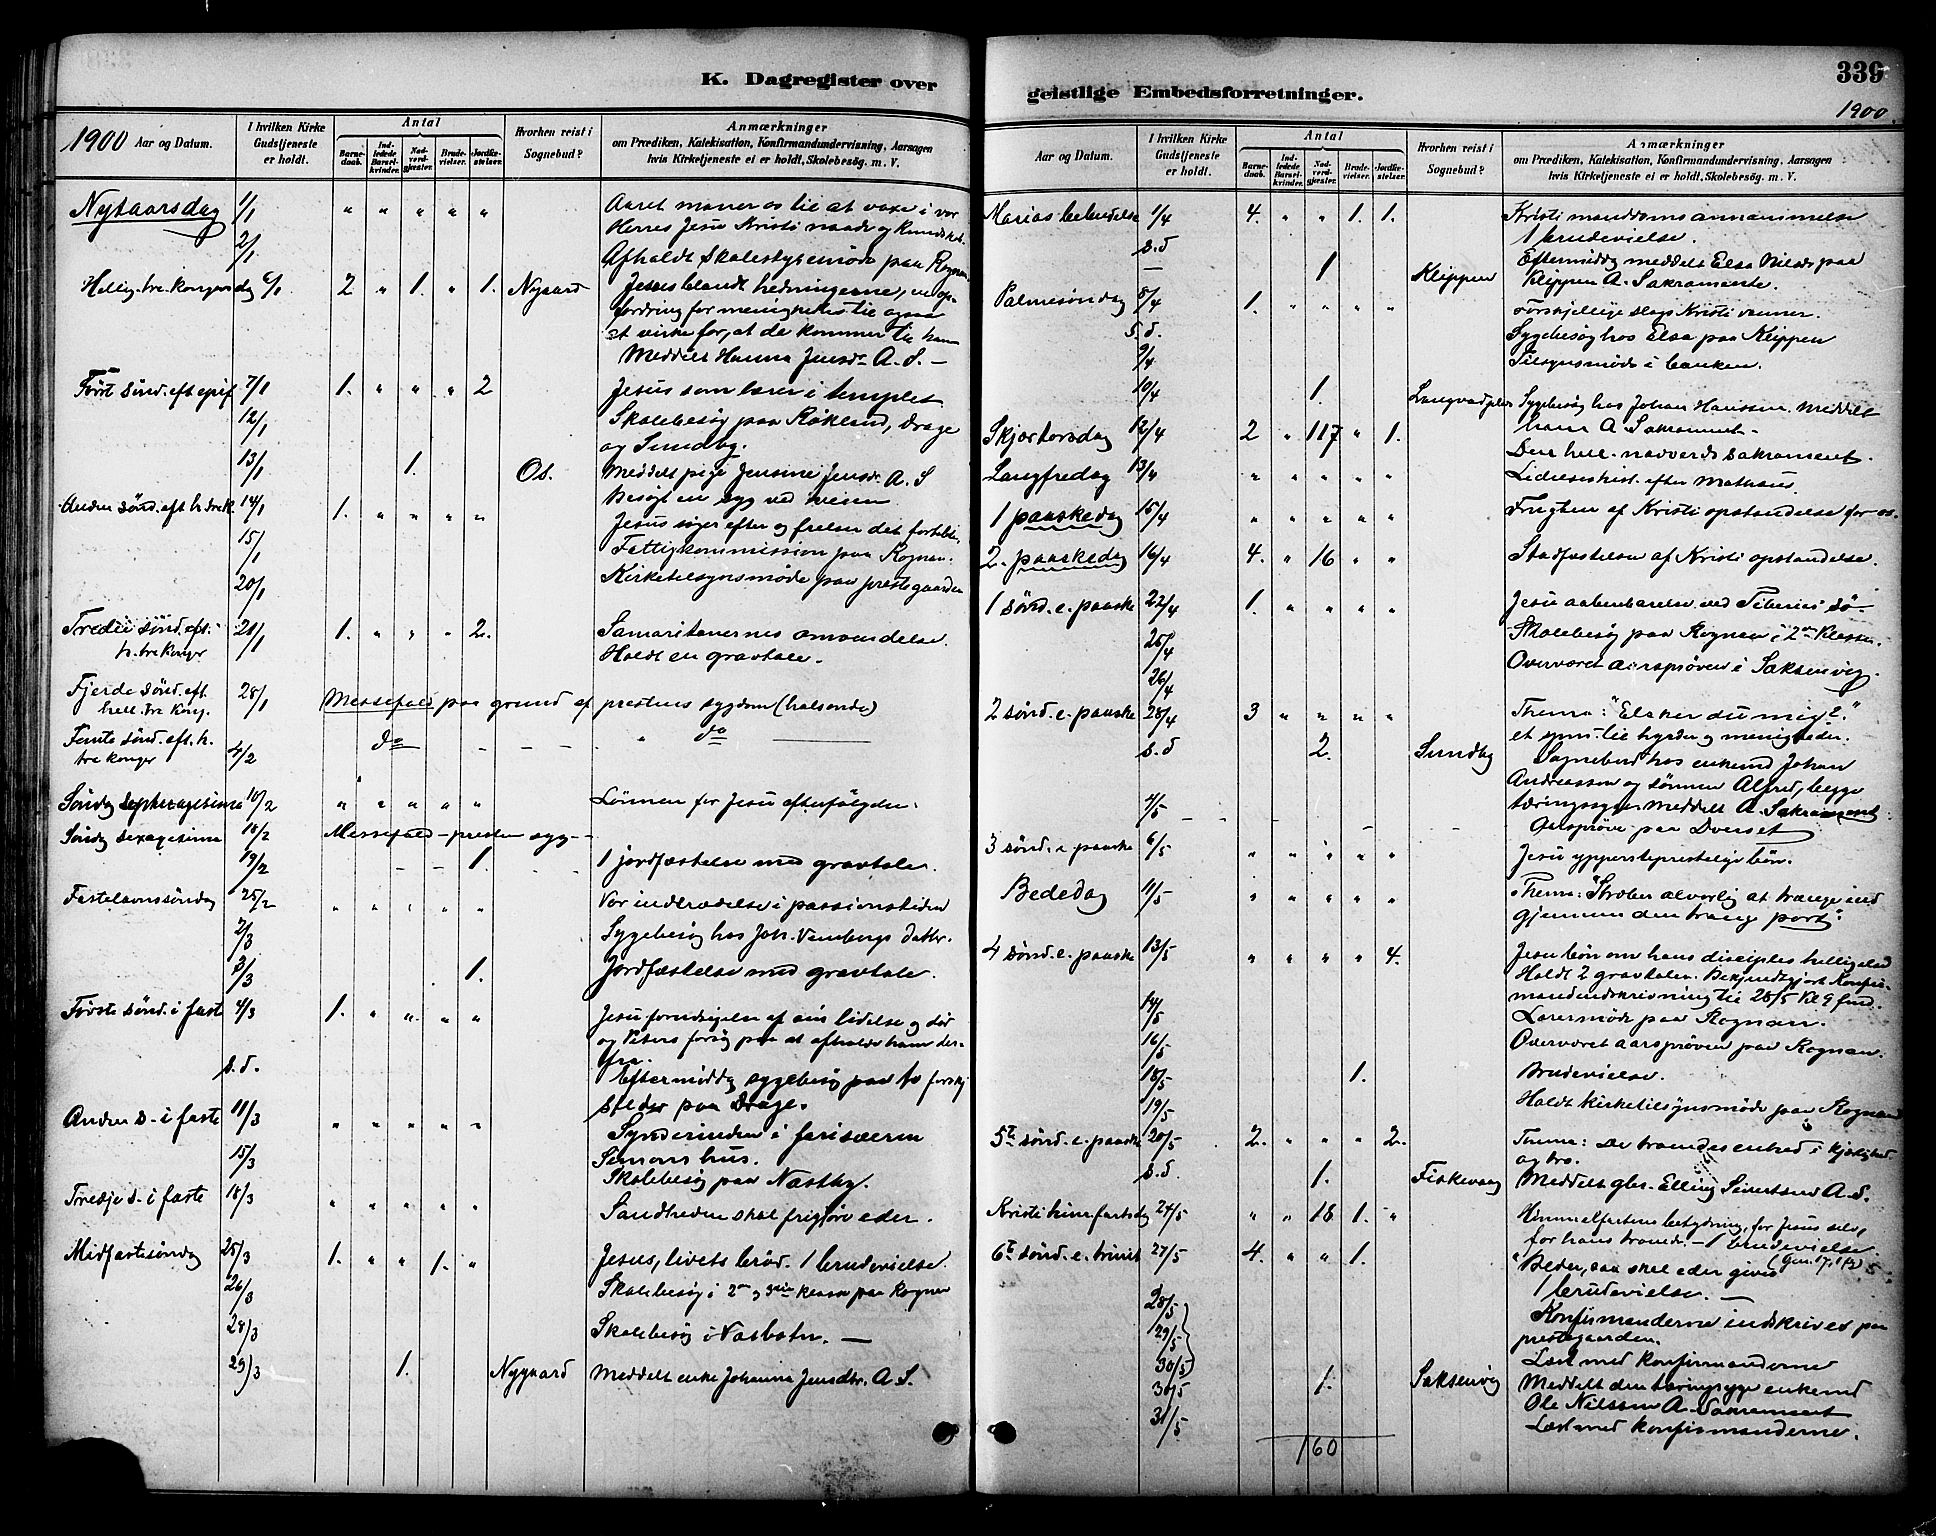 K. Dagregister over
1900 Aar og Datum.
I hvilken Kirke Gudstjeneste er holdt.
Antal
Barnedaab.
Indledede Barselkvinder.
Nadverdgjester.
Brudevielser.
Jordfæstelser.
Hvorhen reist i Sognebud?
Anmærkninger
om Prædiken, Katekisation, Konfirmandundervisning, Aarsagen
hvis Kirketjeneste ei er holdt, Skolebesög. m. V.
Nytaarsdag 1/1 " " " " " Aaret maner os til at voxe i vor
Herres Jesu Kristi naade og kundskab.
2/1 Afholdt Skolestyremöde paa Rognan.
Hellig-tre-kongersdag 6/1 2 " 1. " 1. Nygaard Jesus blandt hedningerne, en op-
fordring for menigheden til ogsaa
at virke for, at de kommer til ham
Meddelt Hanna Jensdr A. S. –
Först sönd. eft epif 7/1 1. " " " 2 Jesus som lærer i templet
12/1 Skolebesög paa Røkland, Drage
og Sundby.
13/1 1. Os. Meddelt pige Jensine Jensdr. A. S
Besøgt en syg ved veien
Anden sönd. eft h. tre K. 14/1 1. " " " " Jesus søger efter og frelser det fortabte.
15/1 Fattigkommission paa Rognan.
20/1 Kirketilsynsmøde paa prestegaarden
Tredie sönd. eft. h. tre Konger 21/1 1. " " " 2. Samaritanernes omvendelse.
Holdt en gravtale.
Fjerde sönd. eft. hell. tre Kong. 28/1 Messefald paa grund af prestens sygdom (halsonde)
Femte sönd. eft. h. tre konger 4/2 do – – – " do
Söndag septuagesima 10/2 " " " " " Lønnen for Jesu efterfølgelse.
Söndag sexagesima 18/2 Messefald – presten syg – –
19/2 – – 1. 1 jordfæstelse med gravtale.
Fastelavnssöndag 25/2 " " " " " Vor indtrædelse i passionstiden
2/3 Sygebesög hos Joh. Vembergs datter.
3/3 1. Jordfæstelse med gravtale.
Förste sönd. i faste 4/3 1. " " " " Jesu forudsigelse af sin lidelse og död
og Peters forsög paa at afholde ham der-
fra.
s. d. Eftermiddag sygebesög paa to forskj
steder paa Drage.
Anden s. i faste 11/3 " " " " " Synderinden i farisæeren
Simons hus.
15/3 Skolebesög paa Næstby.
Tredje s. i faste 18/3 " " " " " Sandheden skal frigjöre eder.
Midfastesöndag 25/3 1. " " 1. " Jesus, livets bröd. 1 brudevielse.
26/3 Skolebesög i 2den og 3die klasse paa Rognan
28/3 Skolebesög i Nesbotn. –
29/3 1. Nygaard Meddelt enke Johanna Jensdtr. A S.
geistlige Embedsforretninger.
339
1900.
Aar og Datum.
I hvilken Kirke Gudstjeneste er holdt.
Antal
Barnedaab.
Indledede Barselkvinder.
Nadverdgjester.
Brudevielser.
Jordfæstelser.
Hvorhen reist i Sognebud?
Anmærkninger
om Prædiken, Katekisation, Konfirmandundervisning, Aarsagen
hvis Kirketjeneste ei er holdt, Skolebesög. m. V.
Marias bebudelse 1/4 4. " " 1. 1. Kristi manddoms annammelse
1 brudevielse.
s. d – 1 Klippen Eftermiddag meddelt Elsa Nilsdr paa
Klippen A. Sakramente.
Palmesöndag 8/4 1. " " " " Forskjellige slags Kristi venner.
s. d. Sygebesög hos Elsa paa Klippen
9/4 Tilsynsmöde i banken.
10/4 1. Sygebesög hos Johan Hanssen. Meddelt
ham A Sakrament.
Skjærtorsdag 12/4 2 " 117 " 1. Den hell. nadverds sakrament.
Langfredag 13/4 " " " " " Lidelseshist. efter Mathæus.
1 paaskedag 15/4 " " " " " Frugten af Kristi opstandelse for os.
2. paaskedag 16/4 4. " 16 " " Stadfæstelsen af Kristi opstandelse.
1 sönd. e. paaske 22/4 1. " " " " Jesu aabenbarelse ved Tiberias sö –
25/4 Skolebesög paa Rognan i 2den Klasse.
26/4 Overværet aarsprøven i Saksenvig.
2 sönd. e. paaske 28/4 3 " " " " Thema: "Elsker du mig?"
et spm. til hyrder og menigheder.
s. d 2. Sundby Sognebud hos enkemd Johan
Andreassen og sönnen Alfred, begge
tæringssyge meddelt A. Sakrament
4/5 Aarsprøve paa Dverset
3 sönd. e paaske 6/5 " " " " " Jesu ypperstepresteligen bön.
Bededag 11/5 " " " " " Thema: "Stræber alvorlig at trænge ind
gjennem den trange port".
4 sönd. e. paaske 13/5 " " " " 4. Jesu bön om hans disciples helligelse
Holdt 2 gravtaler. Bekjendtgjort Konfir-
mandindskrivning til 28/5 Kl 9 fmd.
14/5 Lærermöde paa Rognan.
16/5 Overværet aarspröven paa Rognan.
18/5 1. Brudevielse.
19/5 Holdt kirketilsynsmøde paa Rognan
5te sönd. e. paaske 20/5 2. " " " 2. Thema: De troendes enhed i kjærlighed
og tro.
s. d 1. Fiskevaag Meddelt gbr. Elling Sivertsen A. S.
Kristi himmelfartsdag 24/5 " " 18 1. " Himmelfartens betydning, for Jesus selv,
for hans troende – 1 brudevielse.
6te sönd. e. trinit 27/5 4. " " 1. "Beder, saa skal eder gives
1 brudevielse. –
28/5 Konfirmanderne indskrives paa
prestegaarden.
29/5
30/5 Læst med konfirmanderne
30/5 1. Saksenvig Meddelt den tæringssyge enkemd
Ole Nilssen A. Sakrament
31/5 Læst med konfirmanderne.
160